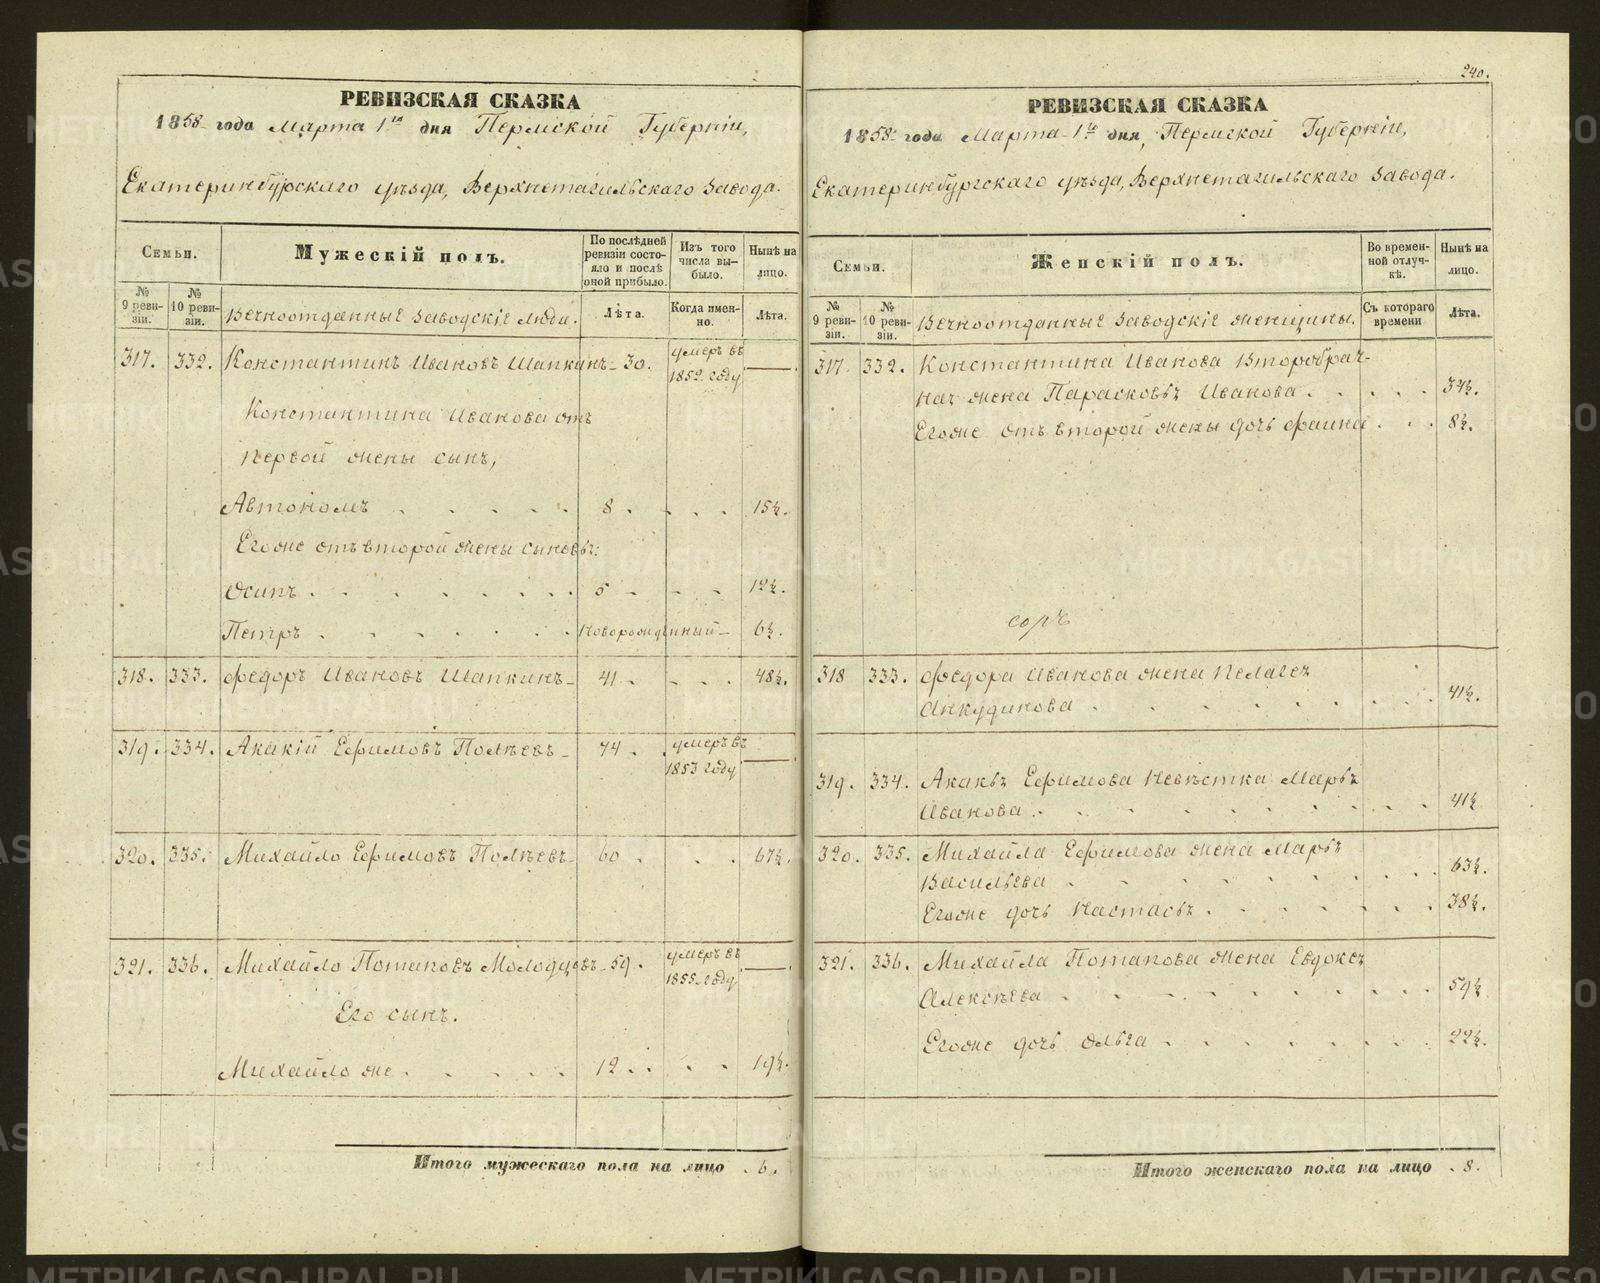 РЕВИЗСКАЯ СКАЗКА
1858 года Марта 1го дня Пермской Губерніи,
Екатеринбургскаго уѣзда, Верхнетагильскаго завода.
Семьи.
Мужескій полъ.
По послѣдней ревизіи состояло и послѣ оной прибыло.
Изъ того числа выбыло.
Нынѣ на лицо.
№ 9 ревизіи.
№ 10 ревизіи.
Вечноотданные заводскіе люди.
Лѣта.
Когда именно.
Лѣта.
317. 332. Константинъ Ивановъ Шапкинъ 30. умеръ въ 1852 году
Константина Иванова отъ
первой жены сынъ,
Автономъ 8. 15½.
Его же отъ второй жены сыновья:
Осипъ 5 12½.
Петръ новорожденный 6½.
318. 333. Федоръ Ивановъ Шапкинъ 41. 48½.
319. 334. Акакій Ефимовъ Полѣевъ 74. умеръ въ 1853 году
320. 335. Михайло Ефимовъ Полѣевъ 60. 67½.
321. 336. Михайло Потаповъ Молодцовъ 59. умеръ въ 1855 году
Его сынъ.
Михайло же 12. 19½.
Итого мужескаго пола на лицо 6.
240.
РЕВИЗСКАЯ СКАЗКА
1858 года Марта 1го дня, Пермской Губерніи,
Екатеринбургскаго уѣзда, Верхнетагильскаго завода.
Семьи.
Женскій полъ.
Во временной отлучкѣ.
Нынѣ на лицо.
№ 9 ревизіи.
№ 10 ревизіи.
Вечноотданные заводскіе женщины.
Съ котораго времени
Лѣта.
317. 332. Константина Иванова второбрач-
ная жена Парасковья Иванова 34½.
Его же отъ второй жены дочь Фаина 8½.
318 333. Федора Иванова жена Пелагея
Анкудинова 41½.
319. 334. Акакія Ефимова невѣстка Марья
Иванова 41½
320. 335. Михайла Ефимова жена Марья
Васильева 63½.
Его же дочь Настасья 38½.
321. 336. Михайла Потапова жена Евдокея
Алексѣева 59½
Его же дочь Ольга 22½.
Итого женскаго пола на лицо 8.
METRIKI.GASO-URAL.RU